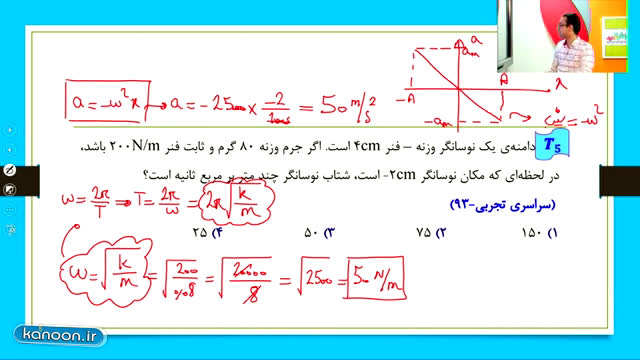 a
aₘ
-A
A
x
-aₘ
شیب = -ω²
a = -ω²x → a = -2500 × -2/100 = 50 m/s²
T5
دامنه‌ی یک نوسانگر وزنه - فنر ۴cm است. اگر جرم وزنه ۸۰ گرم و ثابت فنر ۲۰۰N/m باشد،
در لحظه‌ای که مکان نوسانگر ۲cm- است، شتاب نوسانگر چند متر بر مربع ثانیه است؟
(سراسری تجربی-۹۳)
ω = 2π/T ⇒ T = 2π/ω = 2π√(k/m)
۱) ۱۵۰ ۲) ۷۵ ۳) ۵۰ ۴) ۲۵
ω = √(k/m) = √(200/0/08) = √(20000/8) = √2500 = 50 N/m
kanoon.ir